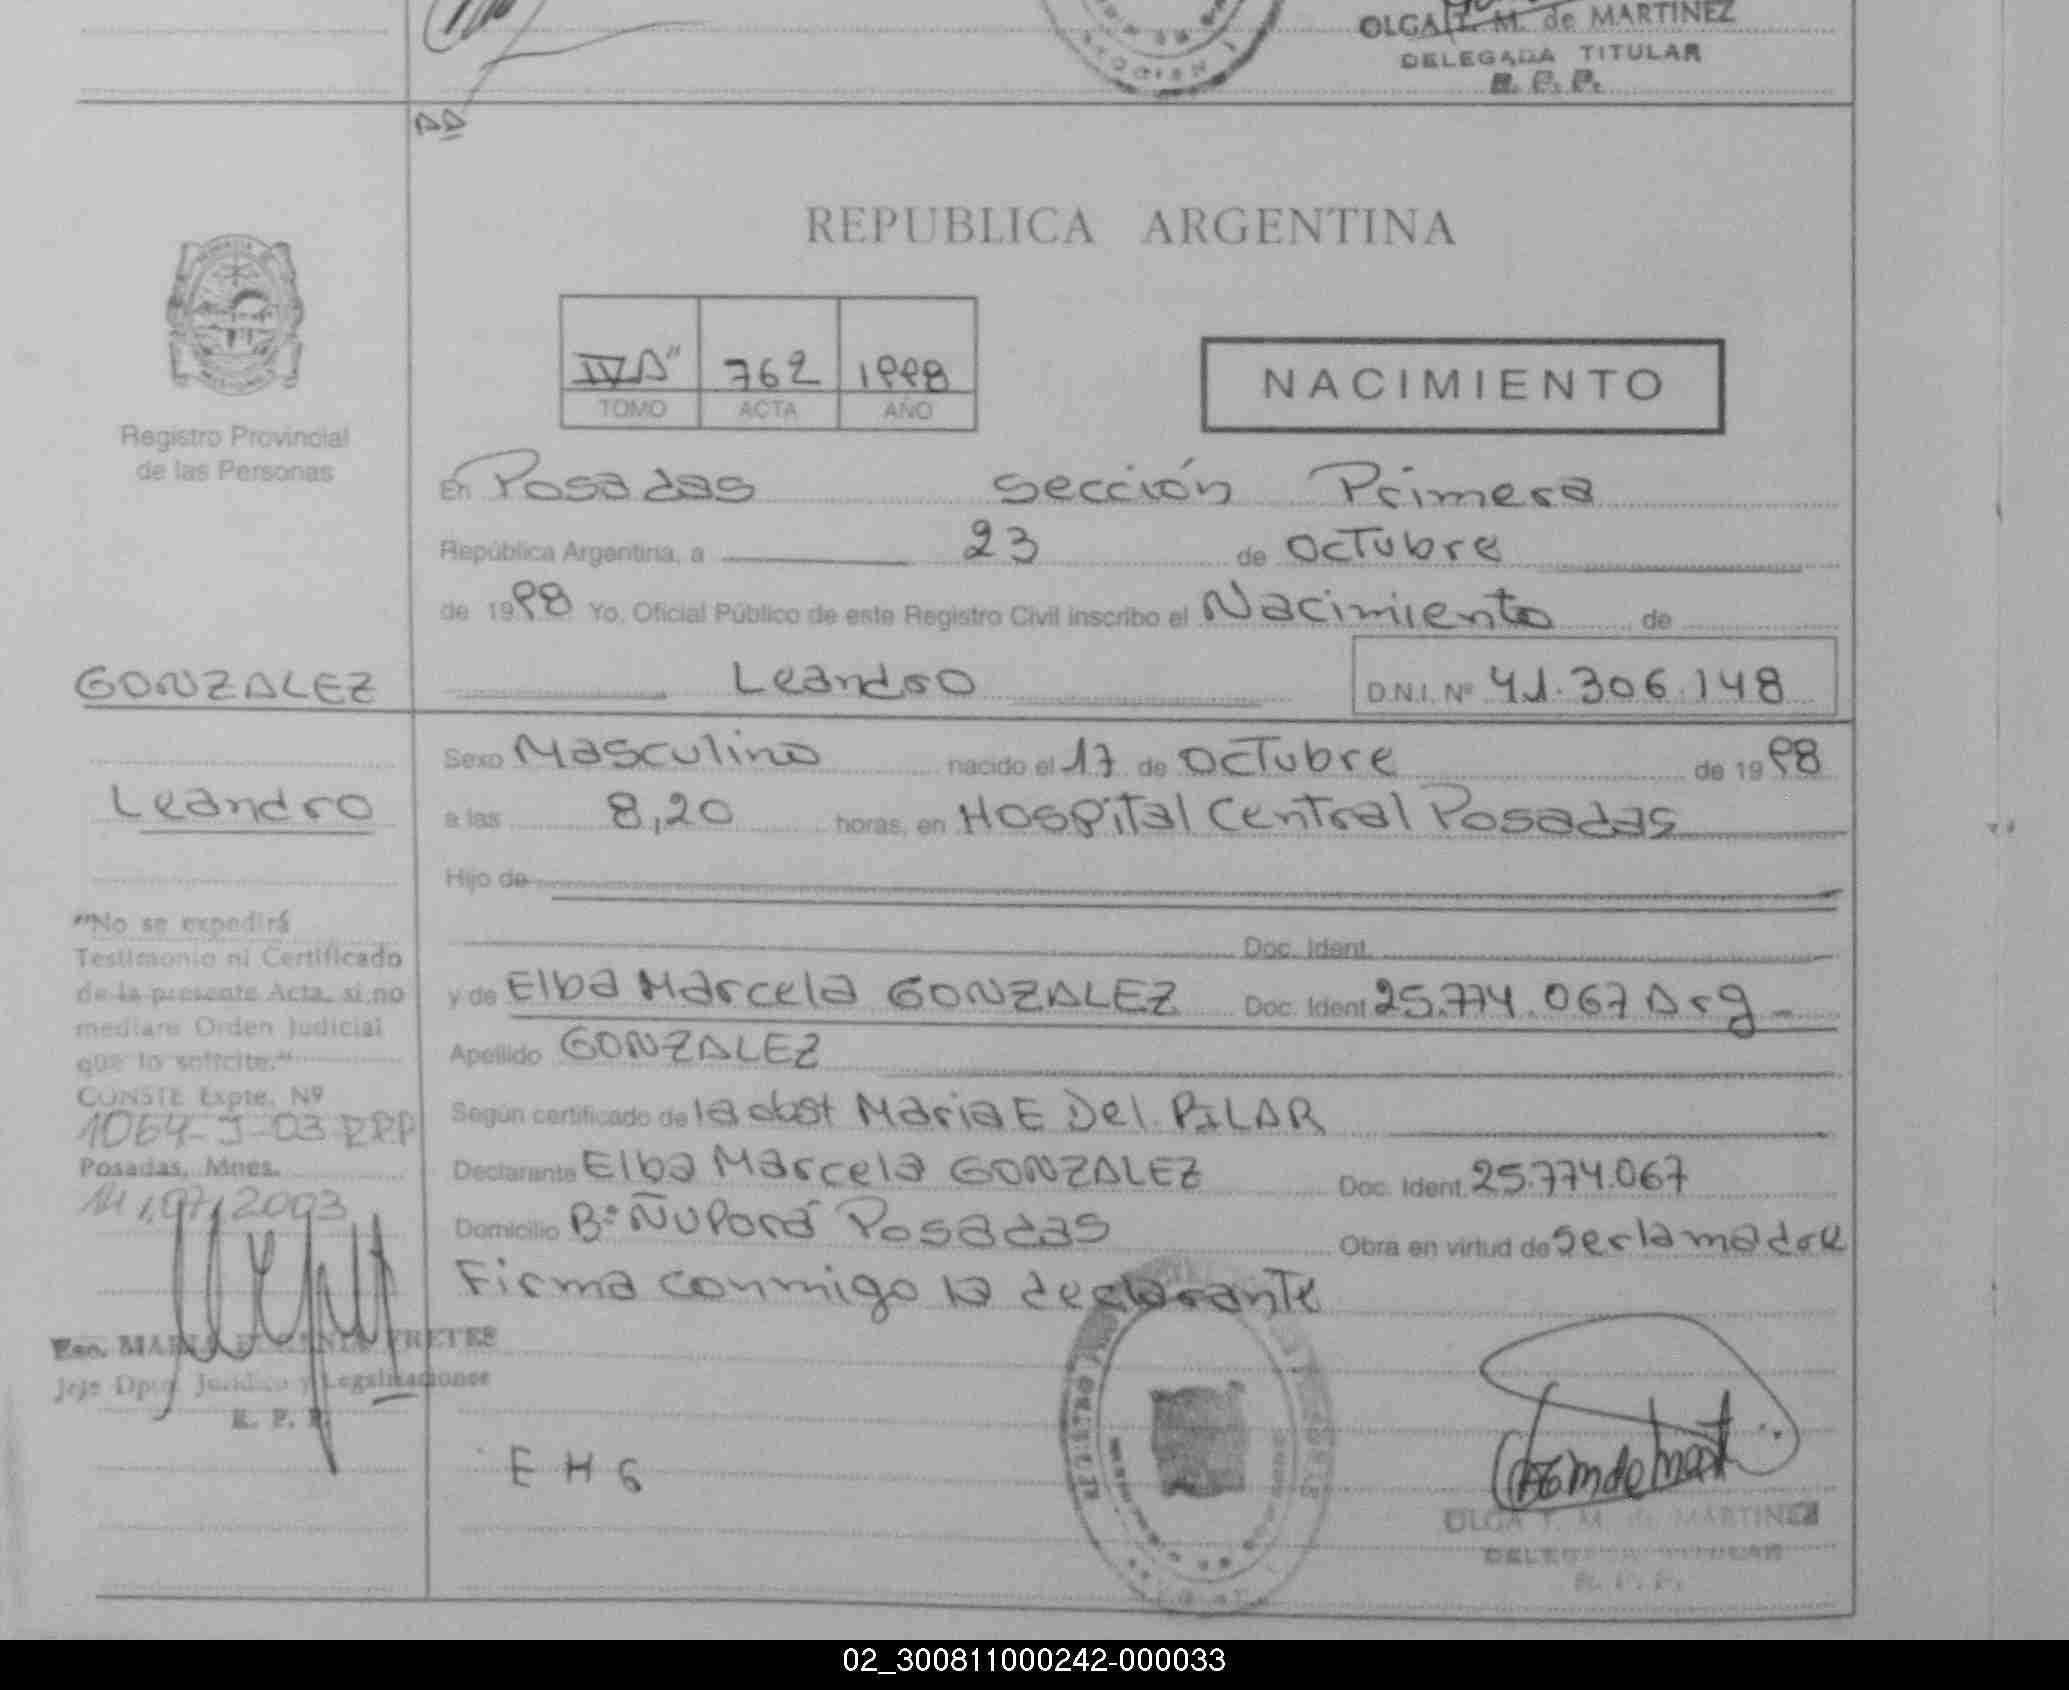 OLGA T. M. de MARTINEZ
DELEGADA TITULAR
R. P. P.
REPUBLICA ARGENTINA
IV"A" 762 1998
TOMO ACTA AÑO
NACIMIENTO
Registro Provincial
de las Personas
En Posadas sección Primera
República Argentina, a 23 de octubre
de 1998 Yo, Oficial Público de este Registro Civil inscribo el Nacimiento de
GONZALEZ
Leandro D.N.I. Nº 41.306.148
Sexo Masculino nacido el 17 de octubre de 1998
Leandro
a las 8,20 horas, en Hospital Central Posadas
Hijo de
"No se expedirá
Testimonio ni Certificado
de la presente Acta, si no
mediare Orden Judicial
que lo solicite."
CONSTE Expte. Nº
1064-J-03 RPP
Posadas, Mnes.
14,07,2003
Doc. Ident.
y de Elba Marcela GONZALEZ Doc. Ident 25.774.067 Arg
Apellido GONZALEZ
Según certificado de la obst Maria E Del PILAR
Declarante Elba Marcela GONZALEZ Doc. Ident. 25.774.067
Domicilio Bº Ñu Porá Posadas Obra en virtud de ser la madre
Firma conmigo la declarante
Esc. MARIA FRETES
Jefe Dpto. Jurídico y Legalizaciones
R. P. P.
E H G
OLGA T. M. de MARTINEZ
DELEGADA TITULAR
R. P. P.
02_300811000242-000033